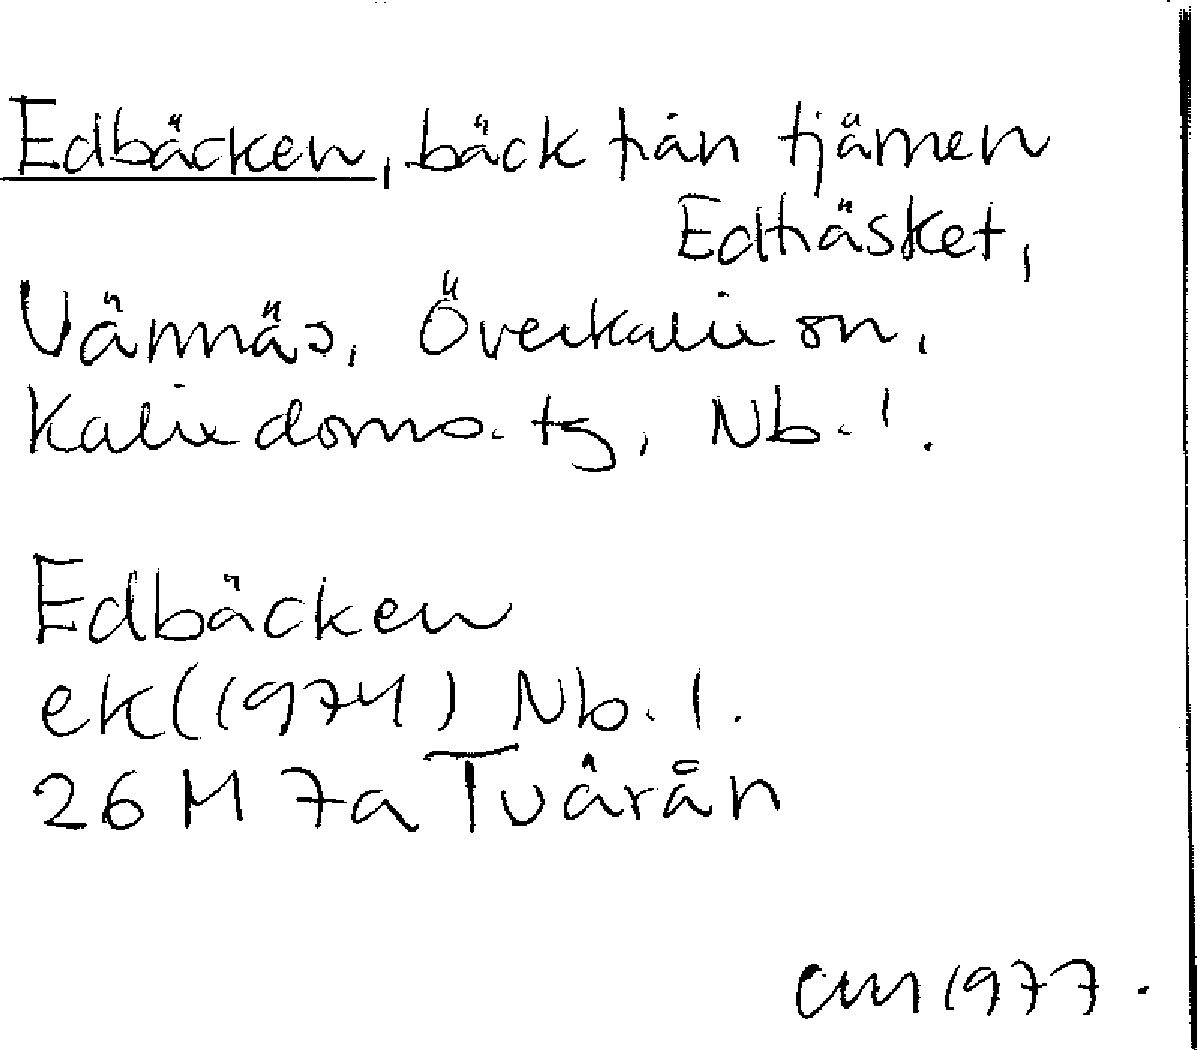 Edbäcken, bäck från tjärnen
Edträsket,
Vännäs, Överkalix sn,
Kalix doms. tg, Nb. l.
Edbäcken
ek (1974) Nb. l.
26 M 7a Tvärån
1977.